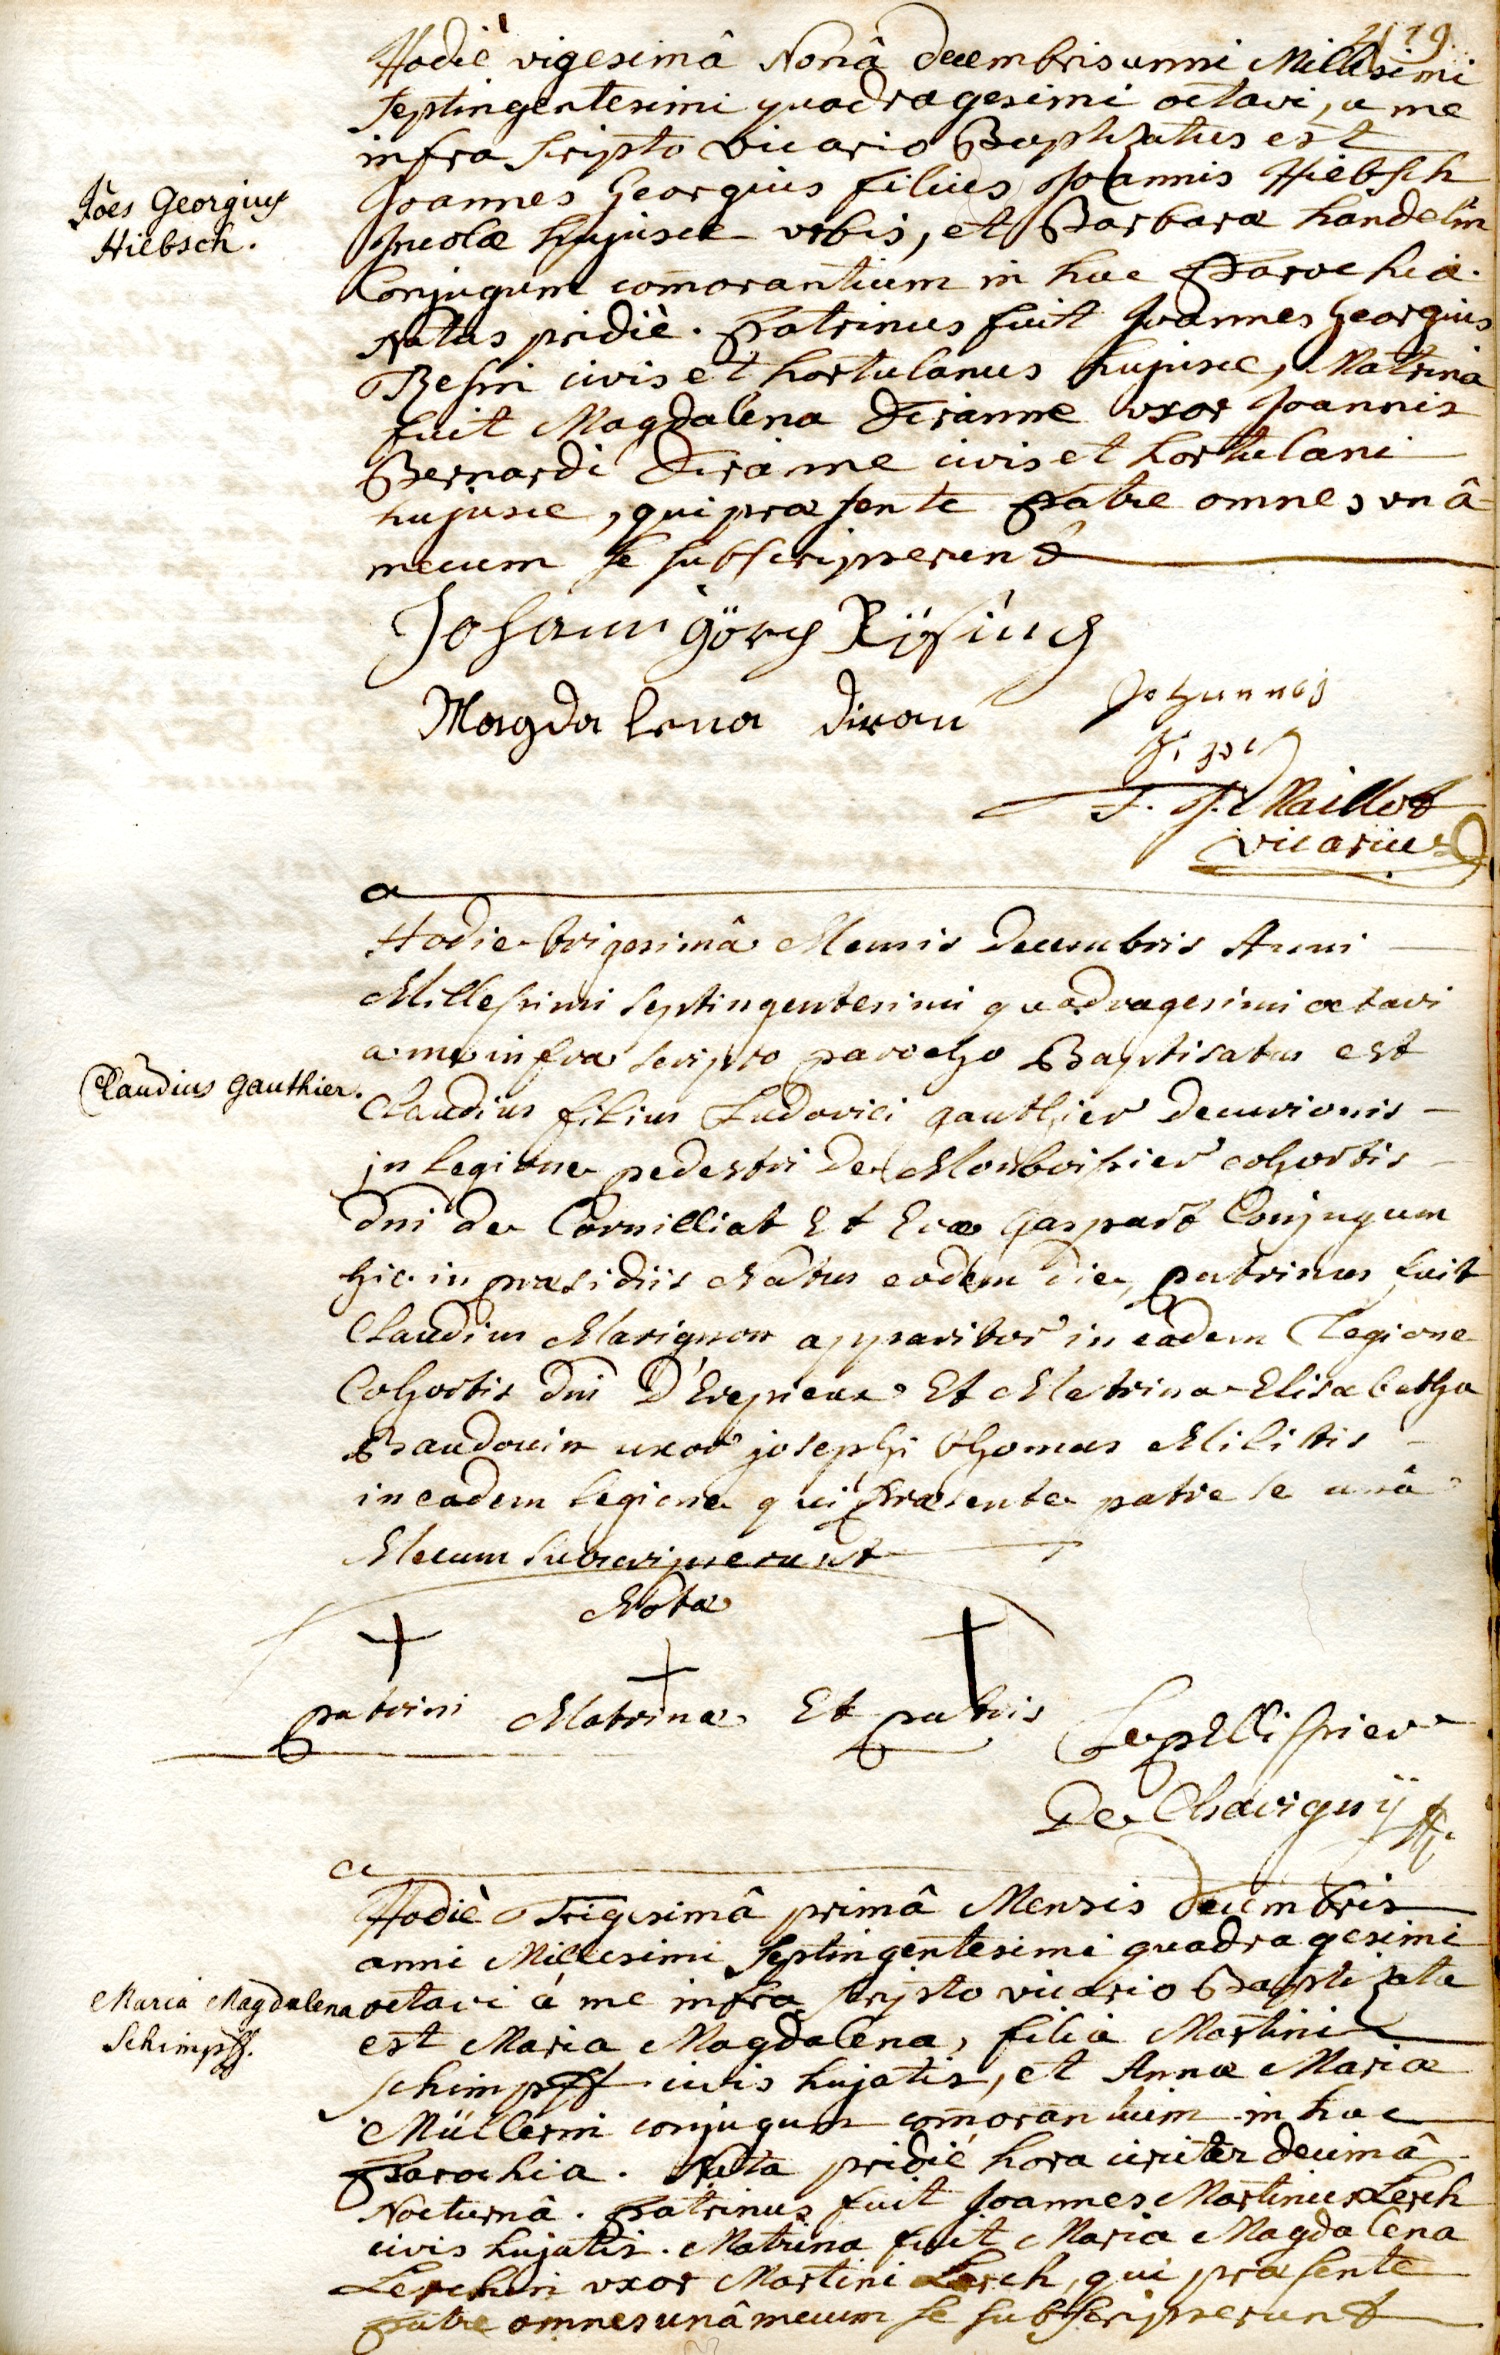 Hodiè vigesimâ Nonâ decembris anni Millesimi
septingentesimi quadragesimi octavi, a me
infra scripto vicario Baptisatus est
Joannes Georgius filius Joannis Hiebsch
Jões Georgius
Hiebsch.
Incolæ hujusce urbis, et Barbaræ handelin
Conjugum com̄orantium in hac Parochia.
Natus pridiè. Patrinus fuit Joannes Georgius
civis et hortulanus hujusce, Matrina
fuit Magdalena Diranne uxor Joannis
Bernardi Diranne civis et hortulani
hujusce, qui præsente Patre omnes unâ
mecum se subscripserunt
Johann Görg
Magdalena diran
Johannes
J. Maillot
vicarius
Hodie vigesimâ Mensis Decembris Anni
Millesimi septingentesimi quadragesimi octavi
a me infra scripto parocho Baptisatus est
Claudius Gauthier.
Claudius filius Ludovici gauthier Decurionis
in legione pedestri De Monboissier cohortis
dni de Cornilliat Et Evæ Gaspart Conjugum
hic in præsidiis Natus eodem die, patrinus fuit
Claudius Marignon apparitor in eadem Legione
Cohortis dni Et Matrina Elisabetha
Baudouin uxor josephi thomas Militis
in eadem legione qui præsente patre se unâ
Mecum subscripserunt
Nota
patrini Matrinæ Et patris
Lepellissier
De Chavignÿ
Hodiè Trigesimâ primâ Mensis decembris
anni Millesimi septingentesimi quadragesimi
Maria Magdalena
Schimpff.
octavi á me infra scripto vicario Baptizata
est Maria Magdalena, filia Martini
Schimpff civis hujatis, et Annæ Mariæ
Müllerin conjugum com̄orantium in hac
Parochia. Nata pridié hora circiter decimâ
Nocturnâ. Patrinus fuit Joannes Martinus Lerch
civis hujatis. Matrina fuit Maria Magdalena
Lerchin uxor Martini Lerch, qui præsente
Patre omnes unâ mecum se subscripserunt